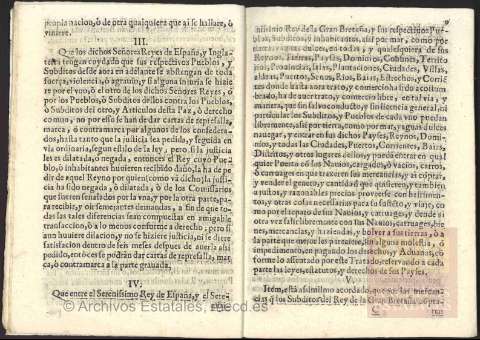 propia nacion, ò de gẽte qualquiera que ai se hallare, ò
viniere.
III.
Que los dichos Señores Reyes de España, y Ingla-
terra tengan cuydado que sus respectivos Pueblos, y
Subditos desde aora en adelante se abstengan de toda
fuerça, violencia, ò agravio, y si alguna injuria se hizie-
re por el vno, ò el otro de los dichos Señores Reyes, ò
por los Pueblos, ò Subditos dellos contra los Pueblos,
ò Subditos del otro, y Articulos desta Paz, ò derecho
comun, no por esso se han de dar cartas de represalla,
marca, ò contramarca por algunos de los confedera-
dos, hasta tanto que la justicia sea pedida, y seguida en
via ordinaria, segun estilo de la ley, pero si la justicia
les es dilatada, ò negada, entonces el Rey cuyo Pue-
blo, ò inhabitantes huvieren recibido daño, la ha de pe-
dir de aquel Reyno por quien (como và dicho) la justi-
cia ha sido negada, ò dilatada, ò de los Comissarios
que fueren señalados por la vna, y por la otra parte, pa-
ra recibir, y oir semejantes demandas, a fin de que to-
das las tales diferencias sean compuestas en amigable
transaccion, ò a lo menos conforme a derecho; pero si
aun huviere dilacion, y no se hiziere justicia, ni se diere
satisfacion dentro de seis meses despues de averla assi
pedido, entonces se podràn dar cartas de represallas, mar-
ca, ò contramarca a la parte gravada.
IV.
Que entre el Serenissimo Rey de España, y el Sere-
nissimo Rey de la Gran Bretaña, y sus respectivos Pue-
blos, Subditos, y inhabitantes, assi por mar, como por
tierra, y aguas dulces, en todas, y qualesquiera de sus
Regiones, Tierras, Payses, Dominios, Confines, Territo-
rios, Provincias, Islas, Plantaciones, Ciudades, Villas,
aldeas, Puertos, Senos, Rios, Baias, Estrechos, y Corriẽ-
tes donde hasta aora trato, y comercio ha sido acostum-
brado, ha de aver trato, y comercio libre, en tal via, y
manera, que sin salvo conducto, y sin licencia general, ni
particular los Subditos, y Pueblos de cada vno puedan
libremente, assi por tierra, como por mar, y aguas dulces
nauegar, y entrar en sus dichos Payses, Reynos, Domi-
nios, y todas las Ciudades, Puertos, Corrientes, Baias,
Districtos, y otros lugares dellos; y pueda entrar en qual-
quier Puerto con sus Navios, cargados, ò vacios, carros,
ò carruages en que traxeren sus mercancias, y ai cõprar,
y vender el genero, y cantidad que quisieren, y tambien
a justos, y razonables precios proverse con bastimen-
tos, y otras cosas necessarias para su sustẽto, y viaje, co-
mo por el reparo de sus Navios, y carruages, y dende ai
otra vez salir libremente con sus Navios, carruages, bie-
nes, mercancias, y haziendas, y bolver a sus tierras, ò a
la parte que mejor les pareciere, sin alguna molestia, ò
impedimento, en pagando los derechos, y Aduanas, cõ-
forme lo assentado por este Tratado, reservando a cada
parte las leyes, estatutos, y derechos de sus Payses.
V.
Itẽm, està assimismo acordado, que por las mercan-
cias q̃ los Subditos del Rey de la Gran Bretaña cõpra-
C
© Archivos Estatales, mecd.es